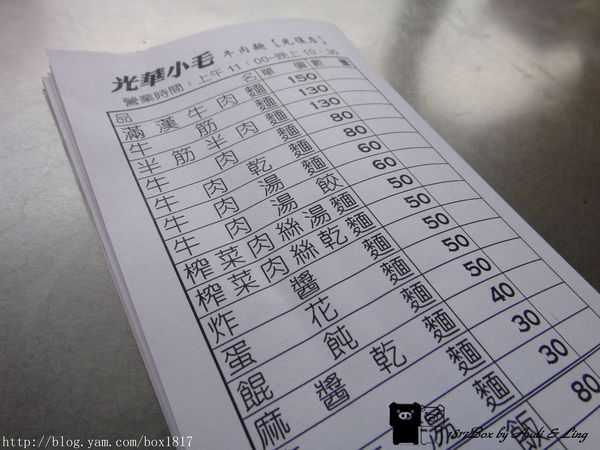 光華小毛 牛肉麵【光復店】
營業時間：上午11：00~晚上10：30
品名 單價 數量
滿漢牛肉麵 150
牛筋麵 130
半筋半肉麵 130
牛肉麵 80
牛肉乾麵 80
牛肉湯麵 60
牛肉湯餃 60
榨菜肉絲湯麵 50
榨菜肉絲乾麵 50
炸醬麵 50
蛋花麵 50
餛飩麵 50
麻醬乾麵 40
麵 30
湯麵 30
飯 80
http://blog.yam.com/box1817
by Audi & Ling